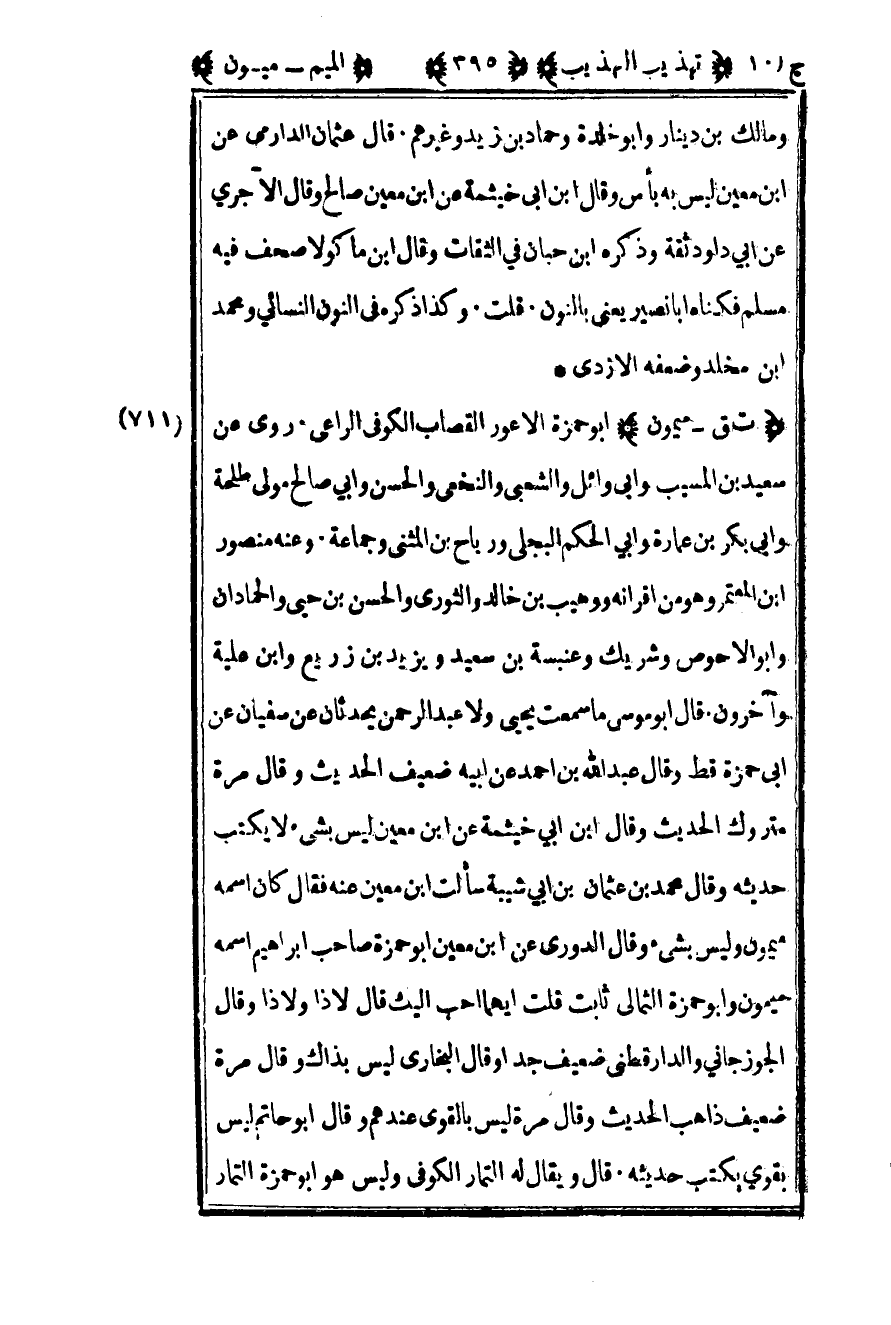 ج /١٠ ﴿ تهذيب التهذيب ﴾ ﴿ ٣٩٥ ﴾ ﴿ الميم ــ ميمون ﴾
ومالك بن دينار وابوخلدة وحماد بن زيد وغيرهم ٠ قال عثمان الدارمى عن
ابن معين ليس به بأس وقال ابن ابى خيثمة عن ابن معين صالح وقال الآجري
عن ابي داود ثقة وذكره ابن حبان في الثقات وقال ابن ماكولا صحف فيه
مسلم فكناه ابا نصير يعنى بالنون ٠ قلت ٠ وكذا ذكره فى النون النسائي ومحمد
ابن مخلد وضعفه الازدى •
﴿ ت ق ــ ميمون ﴾ ابوحمزة الاعور القصاب الكوفى الراعى ٠ روى عن (٧١١)
سعيد بن المسيب وابى وائل والشعبى والنخعى والحسن وابي صالح مولى طلحة
وابي بكر بن عمارة وابي الحكم البجلى ورياح بن المثنى وجماعة ٠ وعنه منصور
ابن المعتمر وهو من اقرانه ووهيب بن خالد والثورى والحسن بن حيى والحمادان
وابو الاحوص وشريك وعنبسة بن سعيد ويزيد بن زريع وابن علية
وآخرون ٠ قال ابوموسى ماسمعت يحيى ولاعبدالرحمن يحدثان عن سفيان عن
ابى حمزة قط وقال عبدالله بن احمد عن ابيه ضعيف الحديث وقال مرة
متروك الحديث وقال ابن ابي خيثمة عن ابن معين ليس بشىء لايكتب
حديثه وقال محمد بن عثمان بن ابي شيبة سألت ابن معين عنه فقال كان اسمه
ميمون وليس بشىء وقال الدورى عن ابن معين ابوحمزة صاحب ابراهيم اسمه
ميمون وابوحمزة الثمالى ثابت قلت ايهما احب اليك قال لاذا ولاذا وقال
الجوزجاني والدارقطنى ضعيف جدا وقال البخارى ليس بذاك وقال مرة
ضعيف ذاهب الحديث وقال مرة ليس بالقوى عندهم وقال ابوحاتم ليس
بقوي يكتب حديثه ٠ قال ويقال له التمار الكوفى وليس هو ابوحمزة التمار